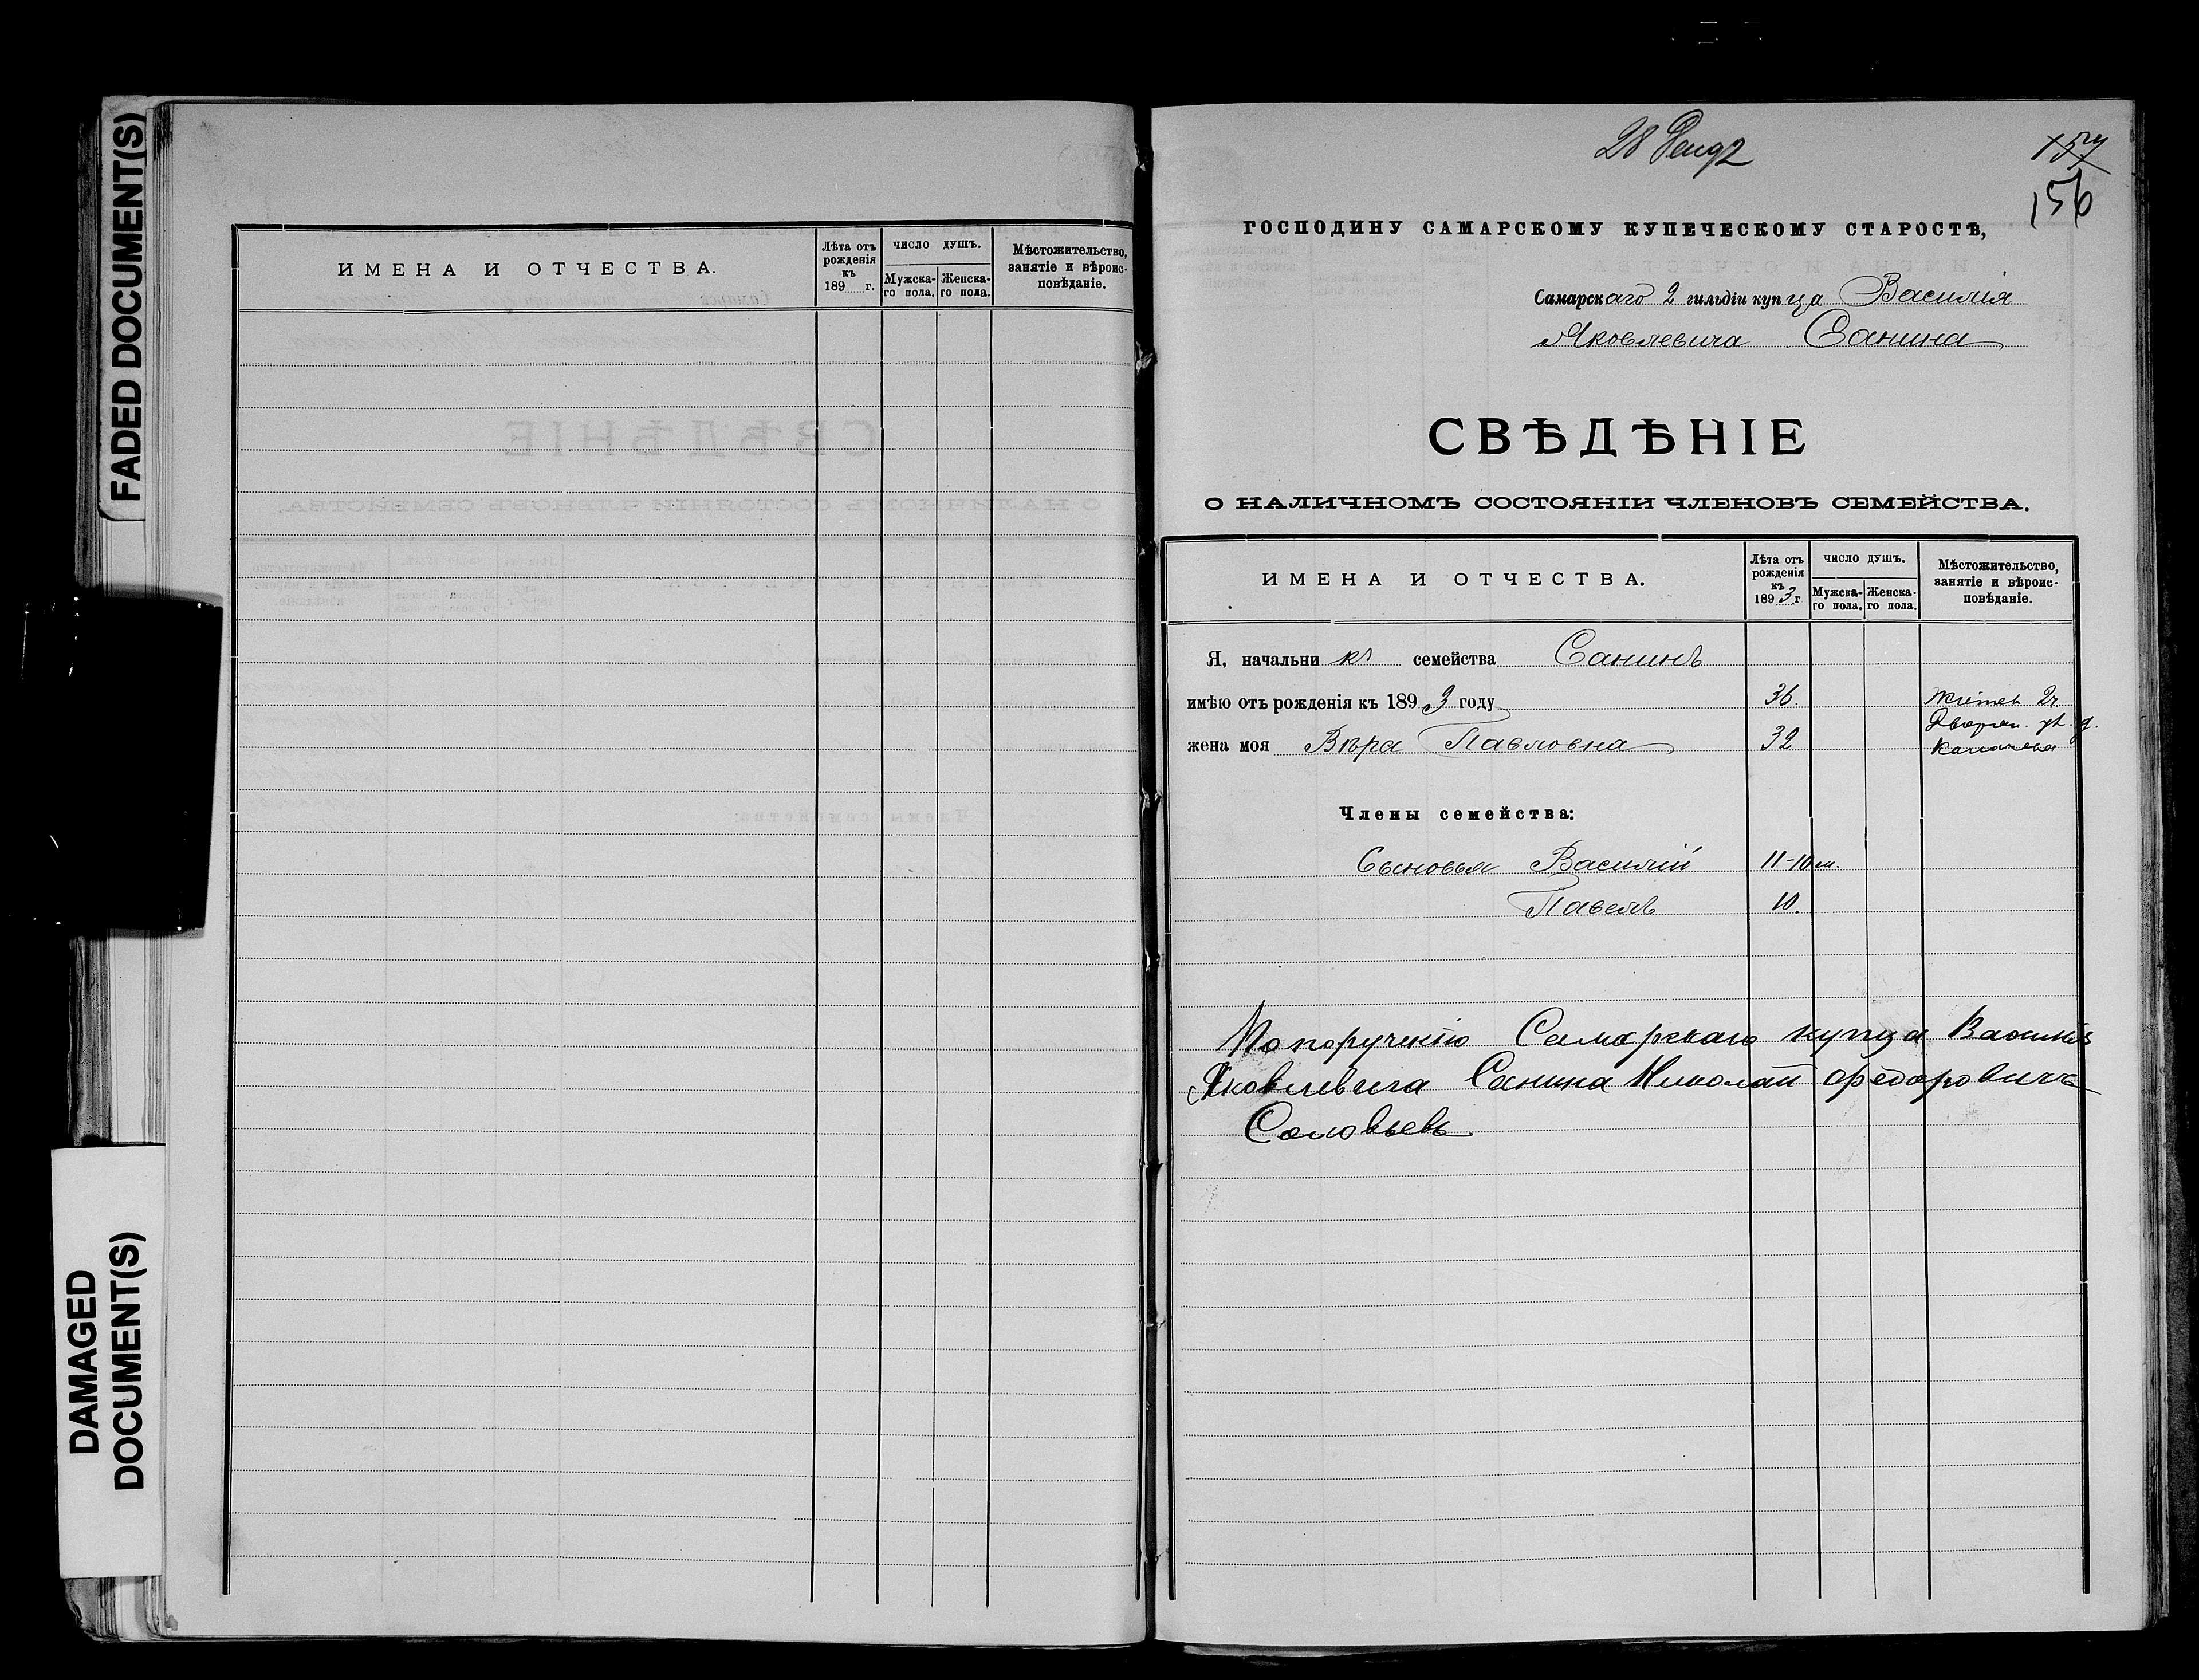 FADED DOCUMENT(S)
DAMAGED
DOCUMENT(S)
ИМЕНА И ОТЧЕСТВА.
Лѣта отъ рожденія къ 189 г.
ЧИСЛО ДУШЪ.
Мужска-го пола.
Женска-го пола.
Мѣстожительство, занятіе и вѣроис-повѣданіе.
28
157
156
ГОСПОДИНУ САМАРСКОМУ КУПЕЧЕСКОМУ СТАРОСТѢ,
Самарскаго 2 гильдіи купца Василія
Яковлевича Санина
СВѢДѢНІЕ
О НАЛИЧНОМЪ СОСТОЯНІИ ЧЛЕНОВЪ СЕМЕЙСТВА.
ИМЕНА И ОТЧЕСТВА.
Лѣта отъ рожденія къ 1893 г
ЧИСЛО ДУШЪ.
Мужска-го пола.
Женска-го пола.
Мѣстожительство, занятіе и вѣроис-повѣданіе.
Я, начальникъ семейства Санинъ
имѣю отъ рожденія къ 1893 году 36. 2 ч.
Дворян. д.
жена моя Вѣра Павловна 32
Члены семейства:
Сыновья Василій 11-10 м.
Павелъ 10.
По порученію Самарскаго купца Василія
Яковлевича Санина Николай Федоровичъ
Соловьевъ